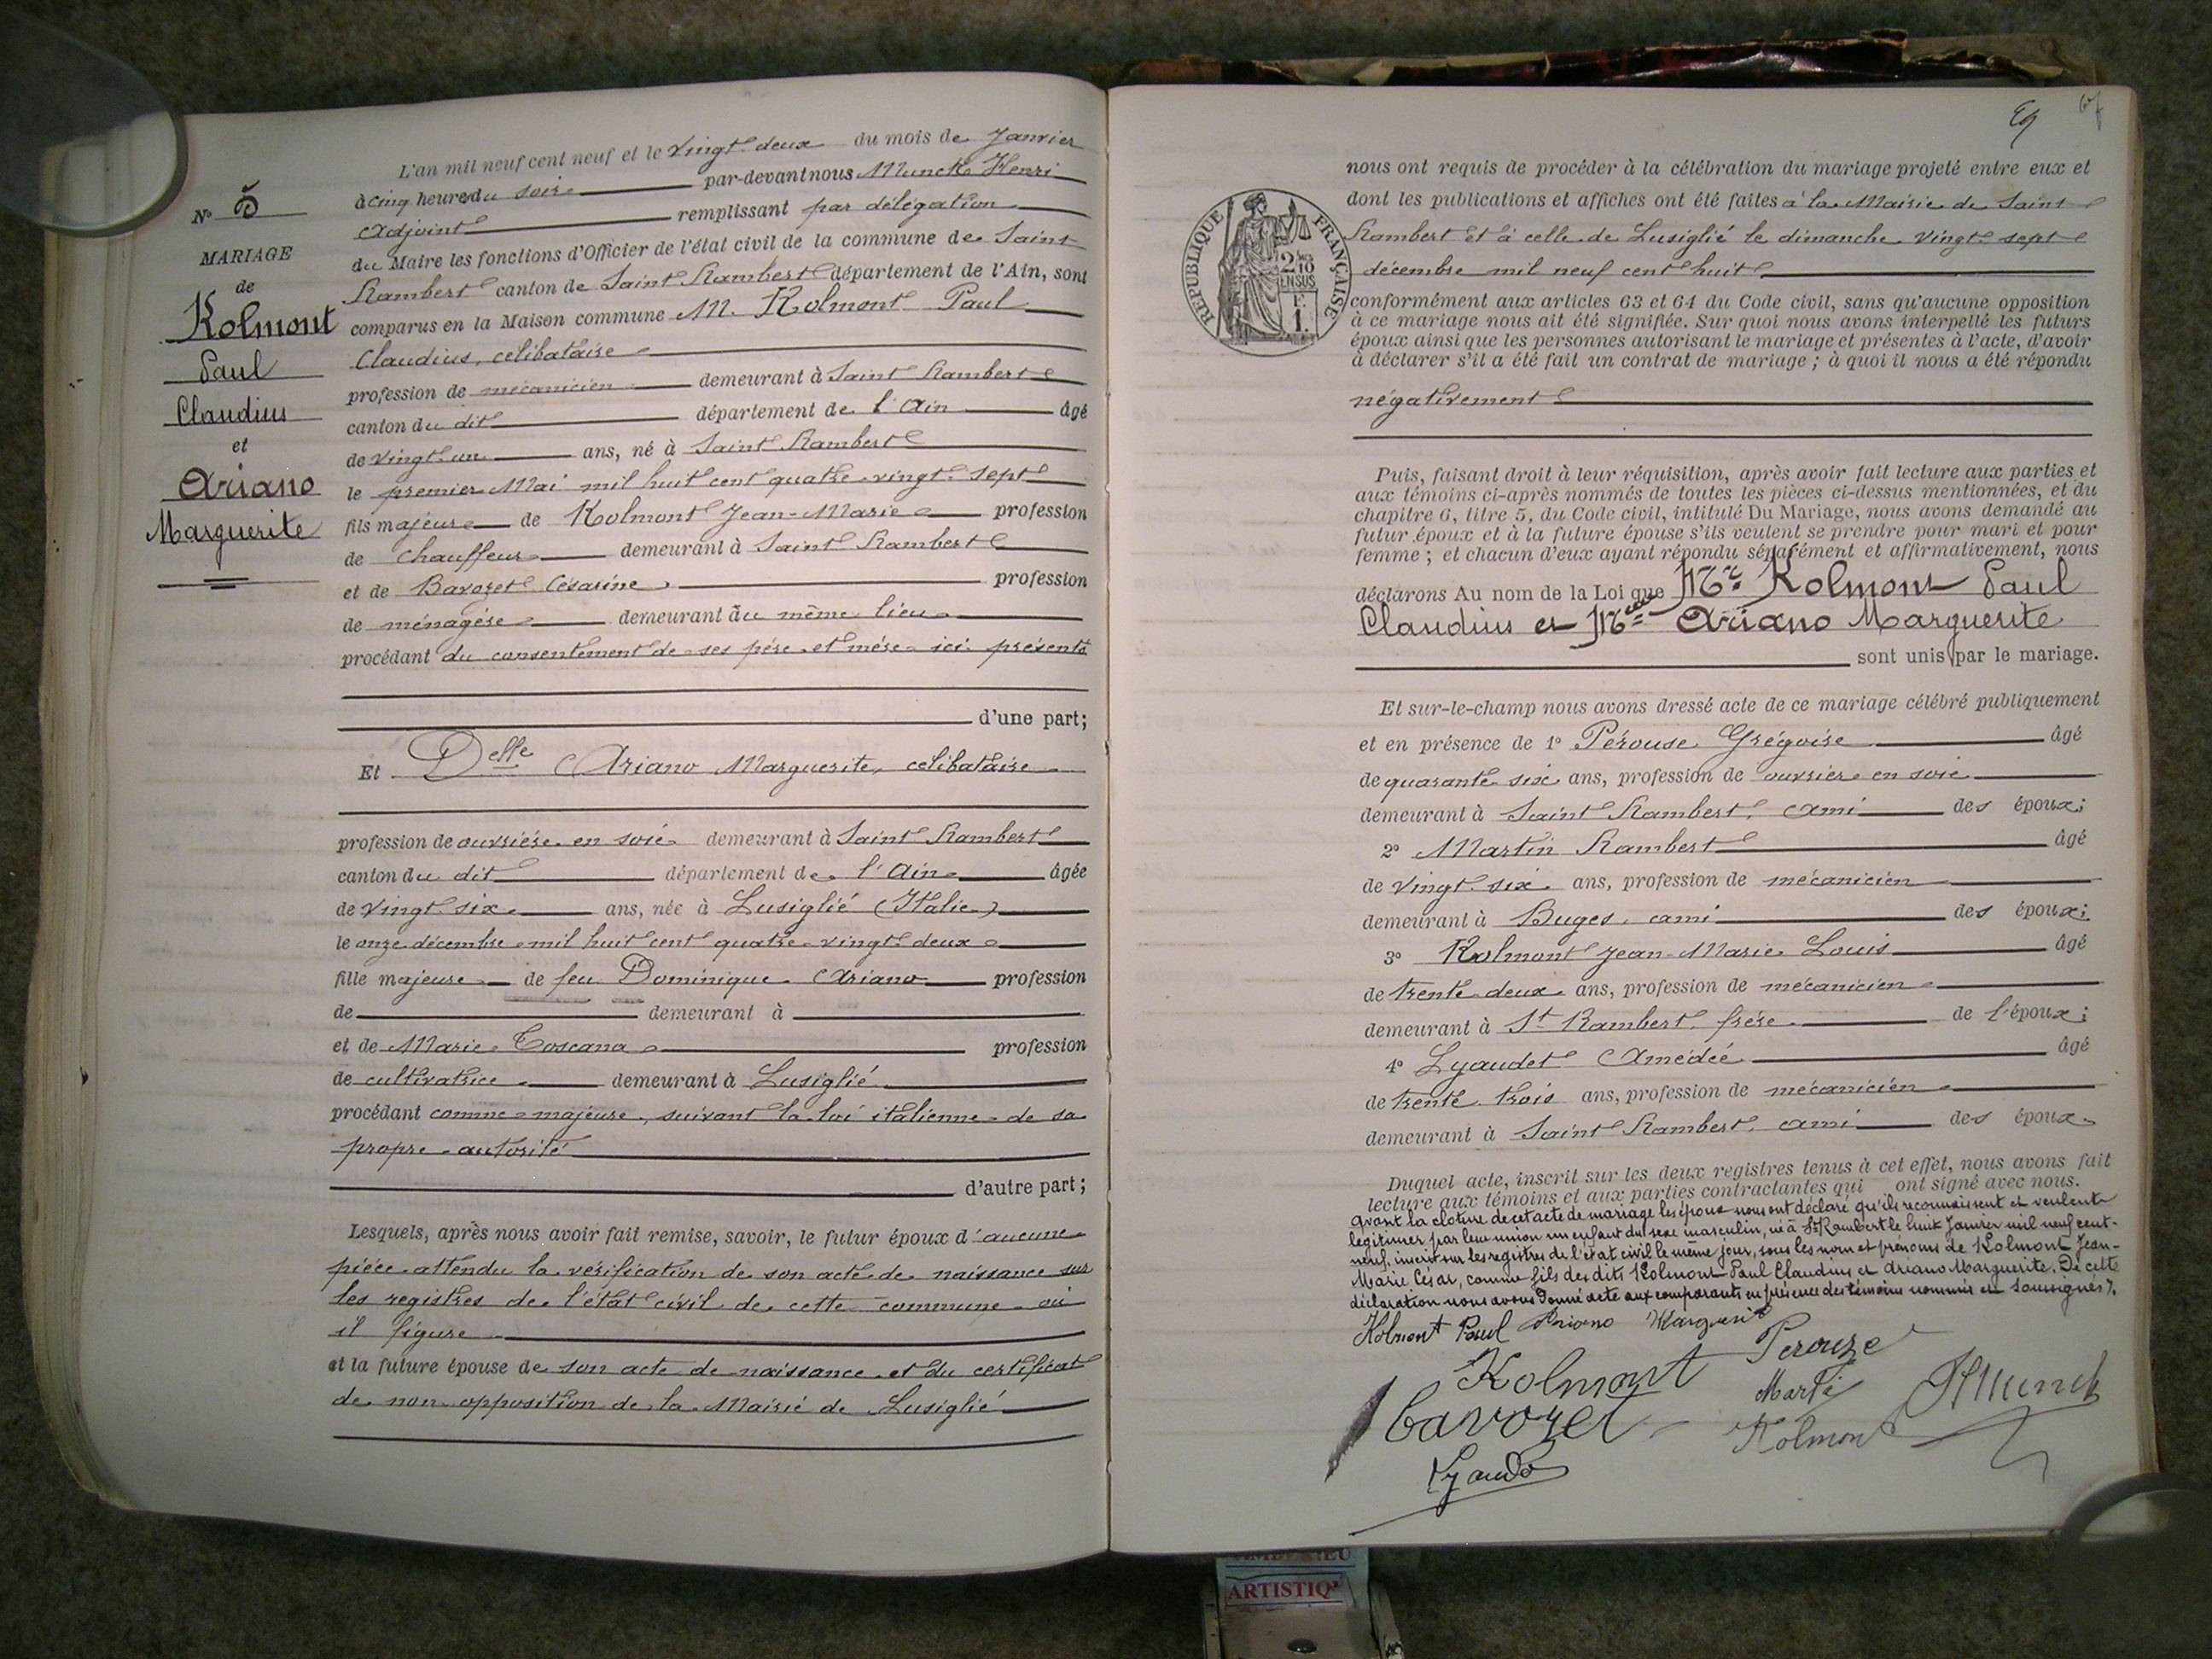 L'an mil neuf cent neuf et le vingt deux du mois de Janvier
à cinq heures du soir par-devant nous Munck Henri
adjoint remplissant par délégation
du Maire les fonctions d'Officier de l'état civil de la commune de Saint
Rambert canton de Saint Rambert département de l'Ain, sont
comparus en la Maison commune M. Kolmont Paul
Claudius, celibataire
profession de mécanicien demeurant à Saint Rambert
canton du dit département de l'Ain âgé
de vingt un ans, né à Saint Rambert
le premier Mai mil huit cent quatre-vingt-sept
fils majeur de Kolmont Jean-Marie profession
de chauffeur demeurant à Saint Rambert
et de Bavozet Césarine profession
de ménagère demeurant au même lieu
procédant du consentement de ses père et mère ici présents
d'une part;
Et Delle Ariano Marguerite, celibataire
profession de ouvrière en soie demeurant à Saint Rambert
canton du dit département de l'Ain âgée
de vingt-six ans, née à Lusiglié (Italie)
le onze décembre mil huit cent quatre-vingt deux
fille majeure de feu Dominique Ariano profession
de demeurant à
et de Marie Toscana profession
de cultivatrice demeurant à Lusiglié
procédant comme majeure, suivant la loi italienne de sa
propre autorité
d'autre part;
Lesquels, après nous avoir fait remise, savoir, le futur époux d'aucune
pièce attendu la vérification de son acte de naissance sur
les registres de l'état civil de cette commune où
il figure
et la future épouse de son acte de naissance et du certificat
de non opposition de la Mairie de Lusiglié
N° 5
MARIAGE
de
Kolmont
Paul
Claudius
et
Ariano
Marguerite
nous ont requis de procéder à la célébration du mariage projeté entre eux et
dont les publications et affiches ont été faites à la Mairie de Saint
Rambert et à celle de Lusiglié le dimanche vingt-sept
décembre mil neuf cent huit
conformément aux articles 63 et 64 du Code civil, sans qu'aucune opposition
à ce mariage nous ait été signifiée. Sur quoi nous avons interpellé les futurs
époux ainsi que les personnes autorisant le mariage et présentes à l'acte, d'avoir
à déclarer s'il a été fait un contrat de mariage ; à quoi il nous a été répondu
négativement
Puis, faisant droit à leur réquisition, après avoir fait lecture aux parties et
aux témoins ci-après nommés de toutes les pièces ci-dessus mentionnées, et du
chapitre 6, titre 5, du Code civil, intitulé Du Mariage, nous avons demandé au
futur époux et à la future épouse s'ils veulent se prendre pour mari et pour
femme ; et chacun d'eux ayant répondu séparément et affirmativement, nous
déclarons Au nom de la Loi que Mr Kolmont Paul
Claudius et Melle Ariano Marguerite
sont unis par le mariage.
Et sur-le-champ nous avons dressé acte de ce mariage célébré publiquement
et en présence de 1° Pérouse Grégoire âgé
de quarante six ans, profession de ouvrier en soie
demeurant à Saint Rambert, ami des époux;
2° Martin Rambert âgé
de vingt-six ans, profession de mécanicien
demeurant à Buges, ami des époux;
3° Kolmont Jean-Marie Louis âgé
de trente-deux ans, profession de mécanicien
demeurant à St Rambert, frère de l'époux;
4° Lyaudet Amédée âgé
de trente trois ans, profession de mécanicien
demeurant à Saint Rambert, ami des époux
Duquel acte, inscrit sur les deux registres tenus à cet effet, nous avons fait
lecture aux témoins et aux parties contractantes qui ont signé avec nous.
Avant la cloture de cet acte de mariage les époux nous ont déclaré qu'ils reconnaissent et veulent
légitimer par leur union un enfant du sexe masculin, né à St Rambert le huit Janvier mil neuf cent-
neuf, inscrit sur les registres de l'état civil le même jour, sous les nom et prénoms de Kolmont Jean-
Marie César, comme fils des dits Kolmont Paul Claudius et Ariano Marguerite. De cette
déclaration nous avons donné acte aux comparants en présence des témoins nommés et soussignés.
Kolmont Paul Ariano Marguerite
Kolmont Perouze
bavozet Marti HMunck
Kolmont
Lyaudet
REPUBLIQUE FRANÇAISE
2/10
EN SUS
F.
1.
ARTISTIQ